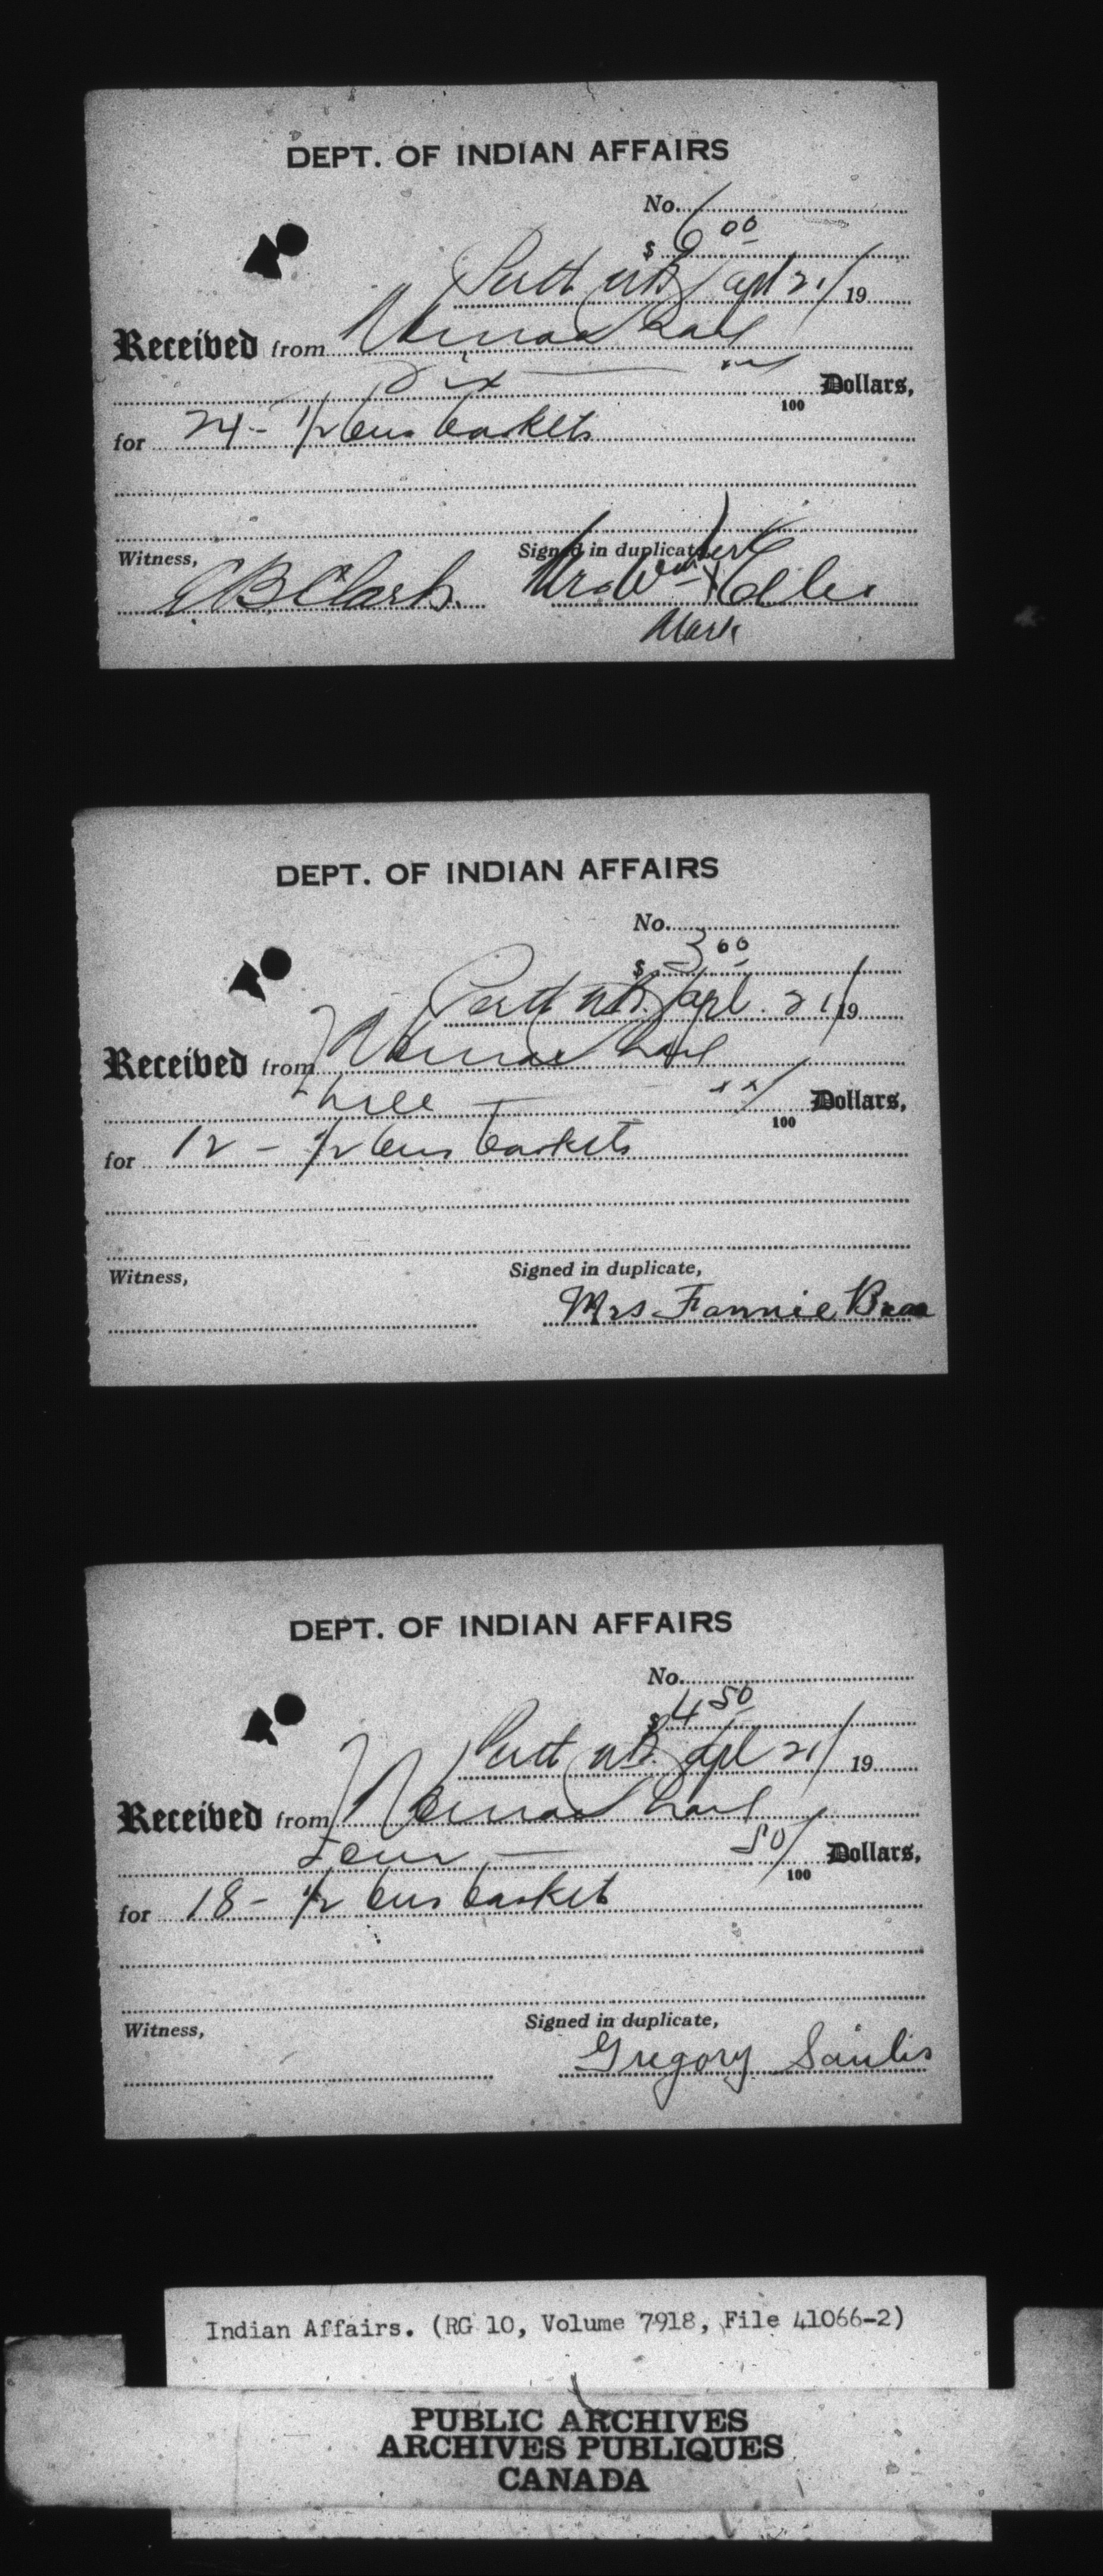 DEPT. OF INDIAN AFFAIRS
No.
$ 6 00
Apl 21/ 19
Received from
Six Dollars,
100
for 24 - 1/2 bus baskets
Witness, Signed in duplicate, her
Mrs Wm X
Mark
DEPT. OF INDIAN AFFAIRS
No.
$ 3 00
Perth NB. Apl. 21/19
Received from
Three — xx/ Dollars,
100
for 12 - 1/2 bus baskets
Witness, Signed in duplicate,
Mrs Fannie
DEPT. OF INDIAN AFFAIRS
No.
$ 4 50
Perth NB. Apl 21/ 19
Received from
Four — 50/ Dollars,
100
for 18 - 1/2 bus basket
Witness, Signed in duplicate,
Gregory Saulis
Indian Affairs. (RG 10, Volume 7918, File 41066-2)
PUBLIC ARCHIVES
ARCHIVES PUBLIQUES
CANADA